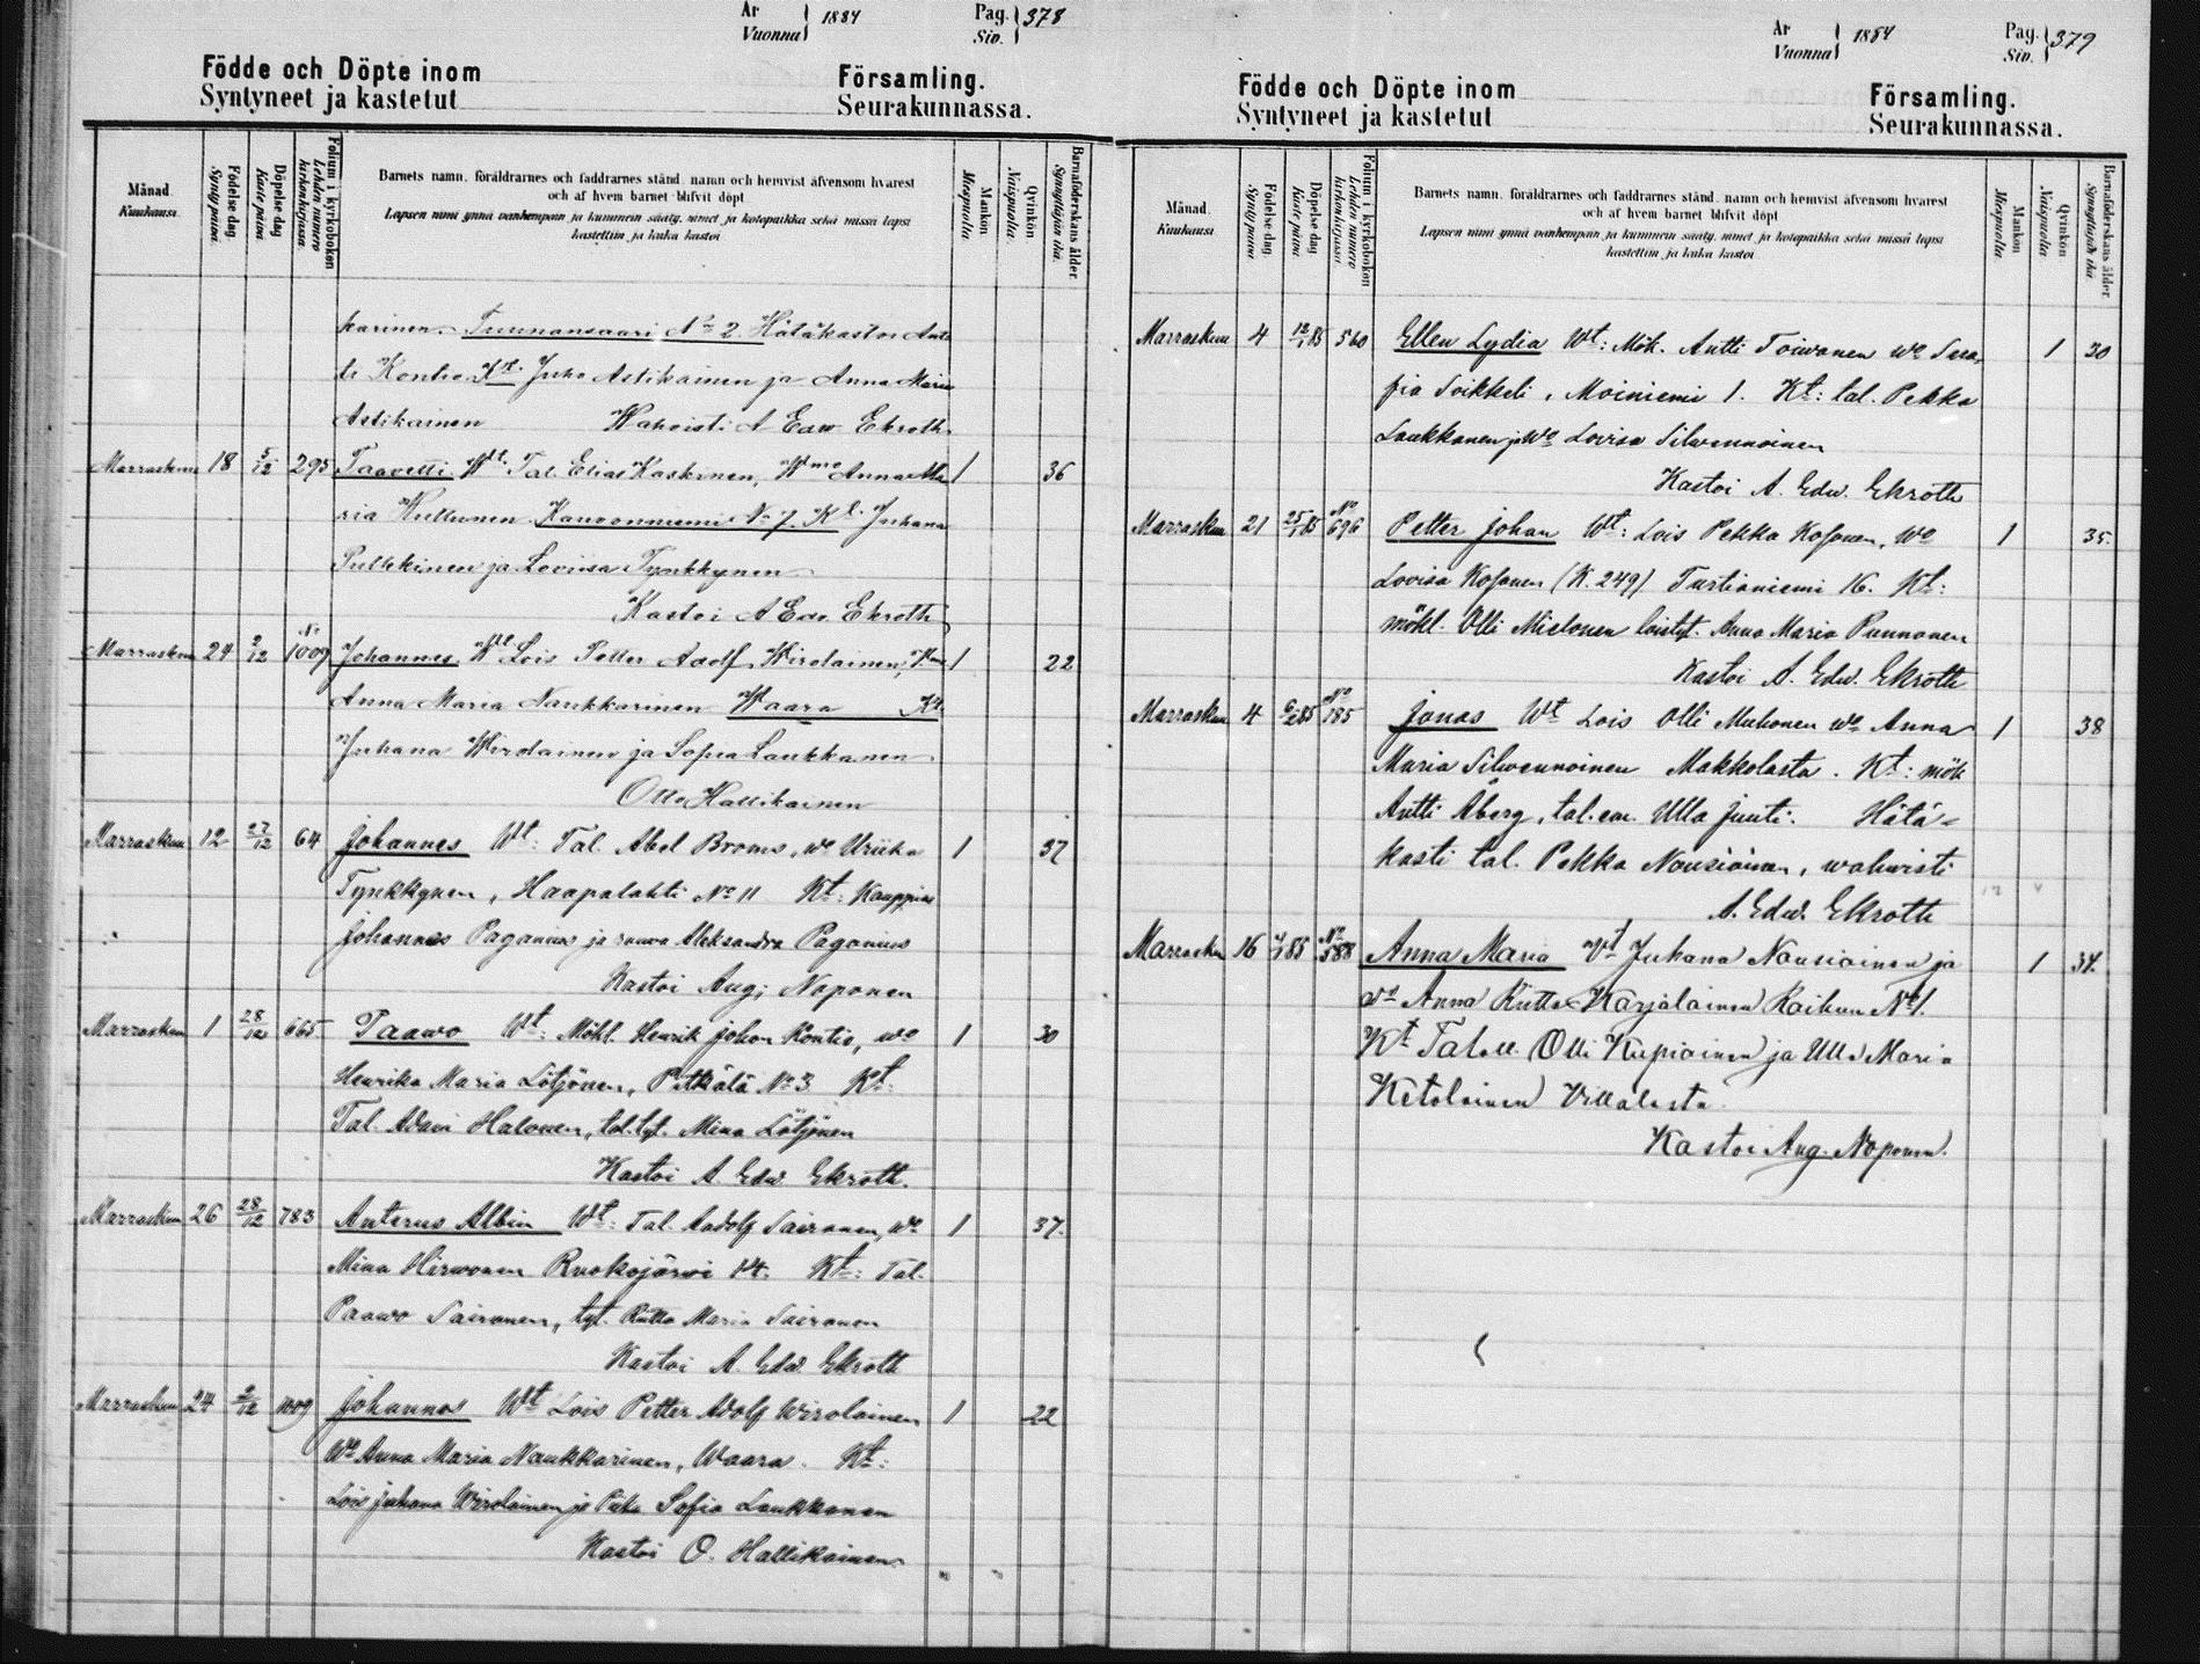 År Vuonna 1884 Pag. Siv. 378
Födde och Döpte inom Församling.
Syntyneet ja kastetut Seurakunnassa.
Månad. Kuukausi.
Födelse dag Synty päivä.
Döpelse dag Kaste päivä
Folium i kyrkoboken Lehden numero kirkonkirjassa
Barnets namn, föräldrarnes och faddrarnes stånd, namn och hemvist äfvensom hvarest
och af hvem barnet blifvit döpt
Lapsen nimi ynnä vanhempain ja kummein sääty, nimet ja kotopaikka sekä missä lapsi
kastettiin ja kuka kastoi
Mankön Miespuolia
Qvinkön Naispuolia.
Barnaföderskans ålder. Synnyttäjän ikä.
karinen. Tunnansaari No 2. Hätäkastoi Ant
ti Kontio. Kt. Juho Astikainen ja Anna Maria
Astikainen Wahvisti A Edw Ekroth.
Marraskuu 18 5/12 295 Taavetti Wt. Tal. Elias Kaskinen, Wmo Anna Ma 1 36
ria Kultunen No 7. Kt. Juhana
Pulkkinen ja Loviisa Tynkkynen
Kastoi A Edw. Ekroth
Marraskuu 24 2/12 No 1009 Johannes Wt. Lois Petter Aadolf Wirolainen, 1 22
Anna Maria Naukkarinen Waara Kt.
Juhana Wirolainen ja Sofia Laukkanen
Otto Hallikainen
Marraskuu 12 27/12 64 Johannes Wt: Tal. Abel Broms, wo Ulriika 1 37
Tynkkynen, Haapalahti No 11 Kt: Kauppias
Johannes Paganius ja rouva Aleksandra Paganius
Kastoi Aug; Noponen
Marraskuu 1 28/12 665 Paawo Wt: Mökl. Henrik Johan Kontio, wo 1 30
Henrika Maria Lötjönen, Pitkälä No 3 Kt:
Tal. Adam Halonen, tal. tyt. Mina Lötjönen
Kastoi A Edw Ekroth.
Marraskuu 26 28/12 783 Anterus Albin Wt: Tal. Aadolf Sairanen, wo 1 37.
Mina Hirwonen Ruokojärwi 14. Kt: Tal.
Paawo Sairanen, tyt. Riitta Maria Sairanen
Kastoi A. Edw. Ekroth
Marraskuu 24 2/12 1009 Johannes Wt Lois Petter Adolf Wirolainen 1 22
Wo Anna Maria Naukkarinen, Waara. Kt:
Lois Juhana Wirolainen ja Piika Sofia Laukkanen
Kastoi O. Hallikainen.
År Vuonna 1884 Pag. Siv. 379
Födde och Döpte inom Församling.
Syntyneet ja kastetut Seurakunnassa.
Månad. Kuukausi
Födelse dag Synty päivä
Döpelse dag Kaste päivä
Folium i kyrkoboken Lehden numero kirkonkirjassa
Barnets namn, föräldrarnes och faddrarnes stånd, namn och hemvist äfvensom hvarest
och af hvem barnet blifvit döpt
Lapsen nimi ynnä vanhempain ja kummein sääty, nimet ja kotopaikka sekä missä lapsi
kastettiin ja kuka kastoi
Mankön Miespuolia
Qvinkön Naispuolia
Barnaföderskans ålder Synnyttäjän ikä
Marraskuu 4 12/1 85 560 Ellen Lydia Wt: Mök. Antti Toiwanen wo Sera, 1 30
fia Soikkeli, Moiniemi 1. Kt: tal. Pekka
Laukkanen ja Wo Lovisa Silwennoinen
Kastoi A. Edw. Ekroth
Marraskuu 21 25/1 85 No 696 Petter Johan Wt: Lois Pekka Kosonen, Wo 1 35.
Lovisa Kosonen (K. 249) Turtianiemi 16. Kt:
mökl. Olli Mielonen loistyt. Anna Maria Punnonen
Kastoi A. Edw. Ekroth
Marraskuu 4 6/2 85 No 785 Jonas Wt Lois Olli Muhonen wo Anna 1 38
Maria Silwennoinen Makkolasta. Kt: mök
Antti Åberg, tal. em. Ulla Juuti. Hätä=
kasti tal. Pekka Nousiainen, wahwisti
A. Edw. Ekroth
Marraskuu 16 85 No 588 Anna Maria Vt Juhana Nousiainen ja 1 34.
vo Anna Riitta Karjalainen Kaihun No 1.
Kt Tal. Olli Kupiainen ja Ulla Maria
Ketolainen Villalasta.
Kastoi Aug. Noponen.